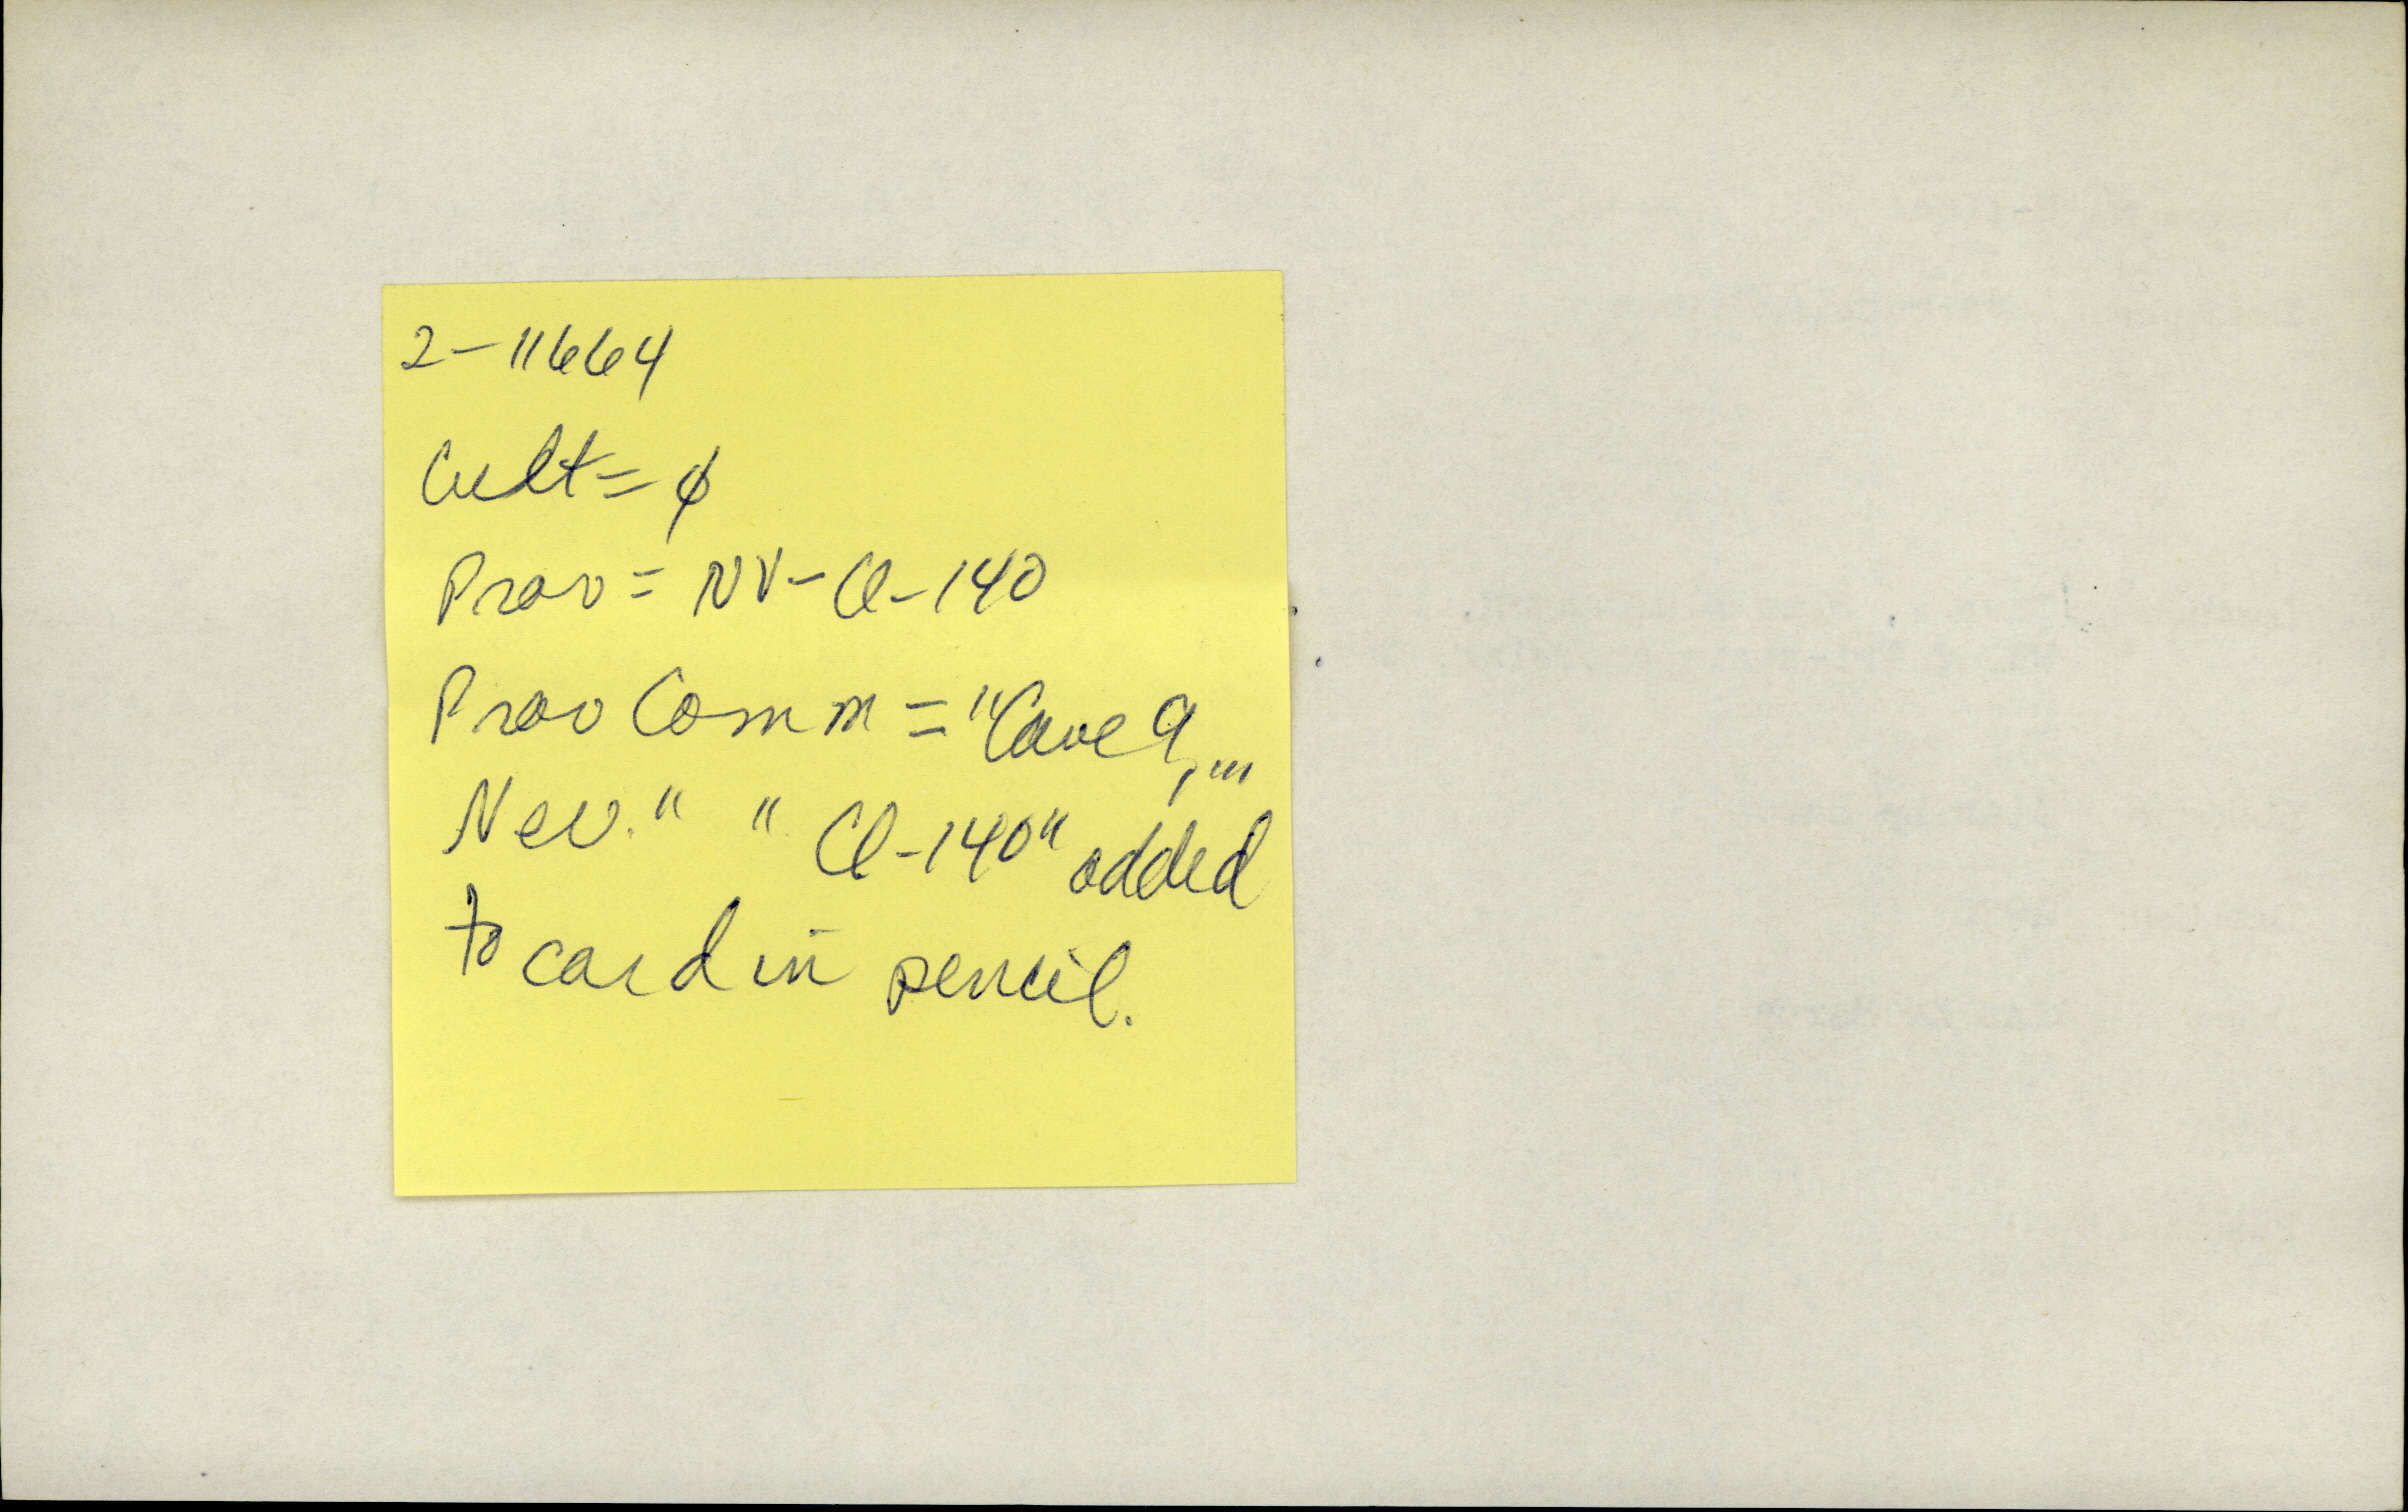 2-11664
Cult = ∅
Prov = NV-Cl-140
Prov Comm = "Cave 9, ...
Nev." "Cl-140" added
to card in pencil.